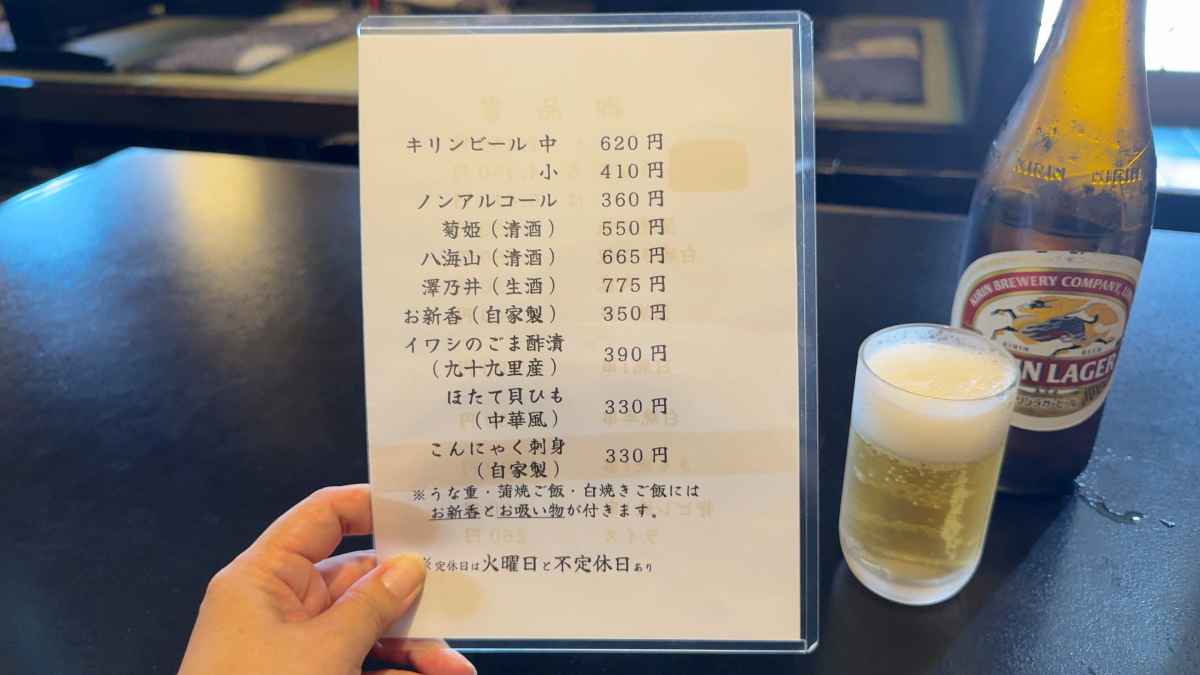 キリンビール 中 620円
小 410円
ノンアルコール 360円
菊姫(清酒) 550円
八海山(清酒) 665円
澤乃井(生酒) 775円
お新香(自家製) 350円
イワシのごま酢漬
(九十九里産) 390円
ほたて貝ひも
(中華風) 330円
こんにゃく刺身
(自家製) 330円
※うな重・蒲焼ご飯・白焼きご飯には
お新香とお吸い物が付きます。
※定休日は火曜日と不定休日あり
KIRIN KIRIN
KIRIN BREWERY COMPANY,
KIRIN BEER
LAGER